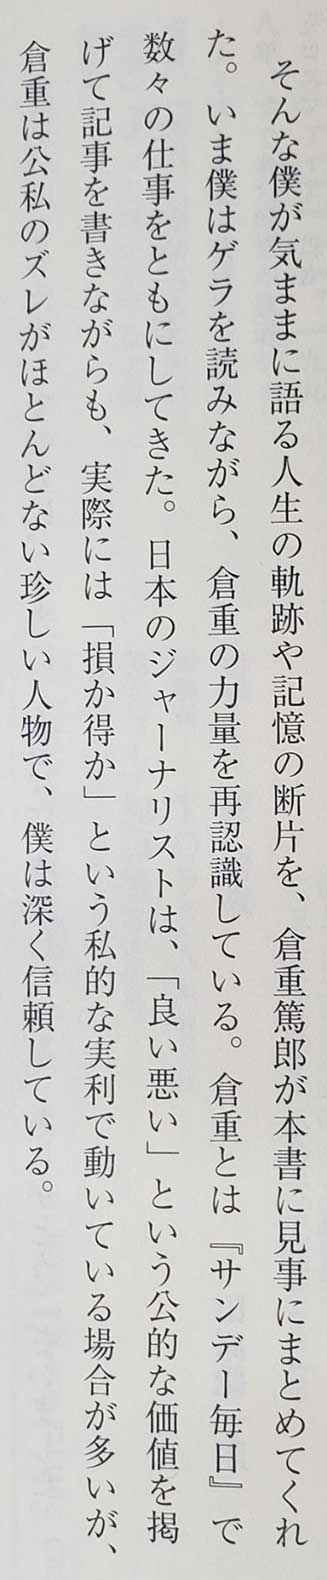 そんな僕が気ままに語る人生の軌跡や記憶の断片を、倉重篤郎が本書に見事にまとめてくれ
た。いま僕はゲラを読みながら、倉重の力量を再認識している。倉重とは『サンデー毎日』で
数々の仕事をともにしてきた。日本のジャーナリストは、「良い悪い」という公的な価値を掲
げて記事を書きながらも、実際には「損か得か」という私的な実利で動いている場合が多いが、
倉重は公私のズレがほとんどない珍しい人物で、僕は深く信頼している。